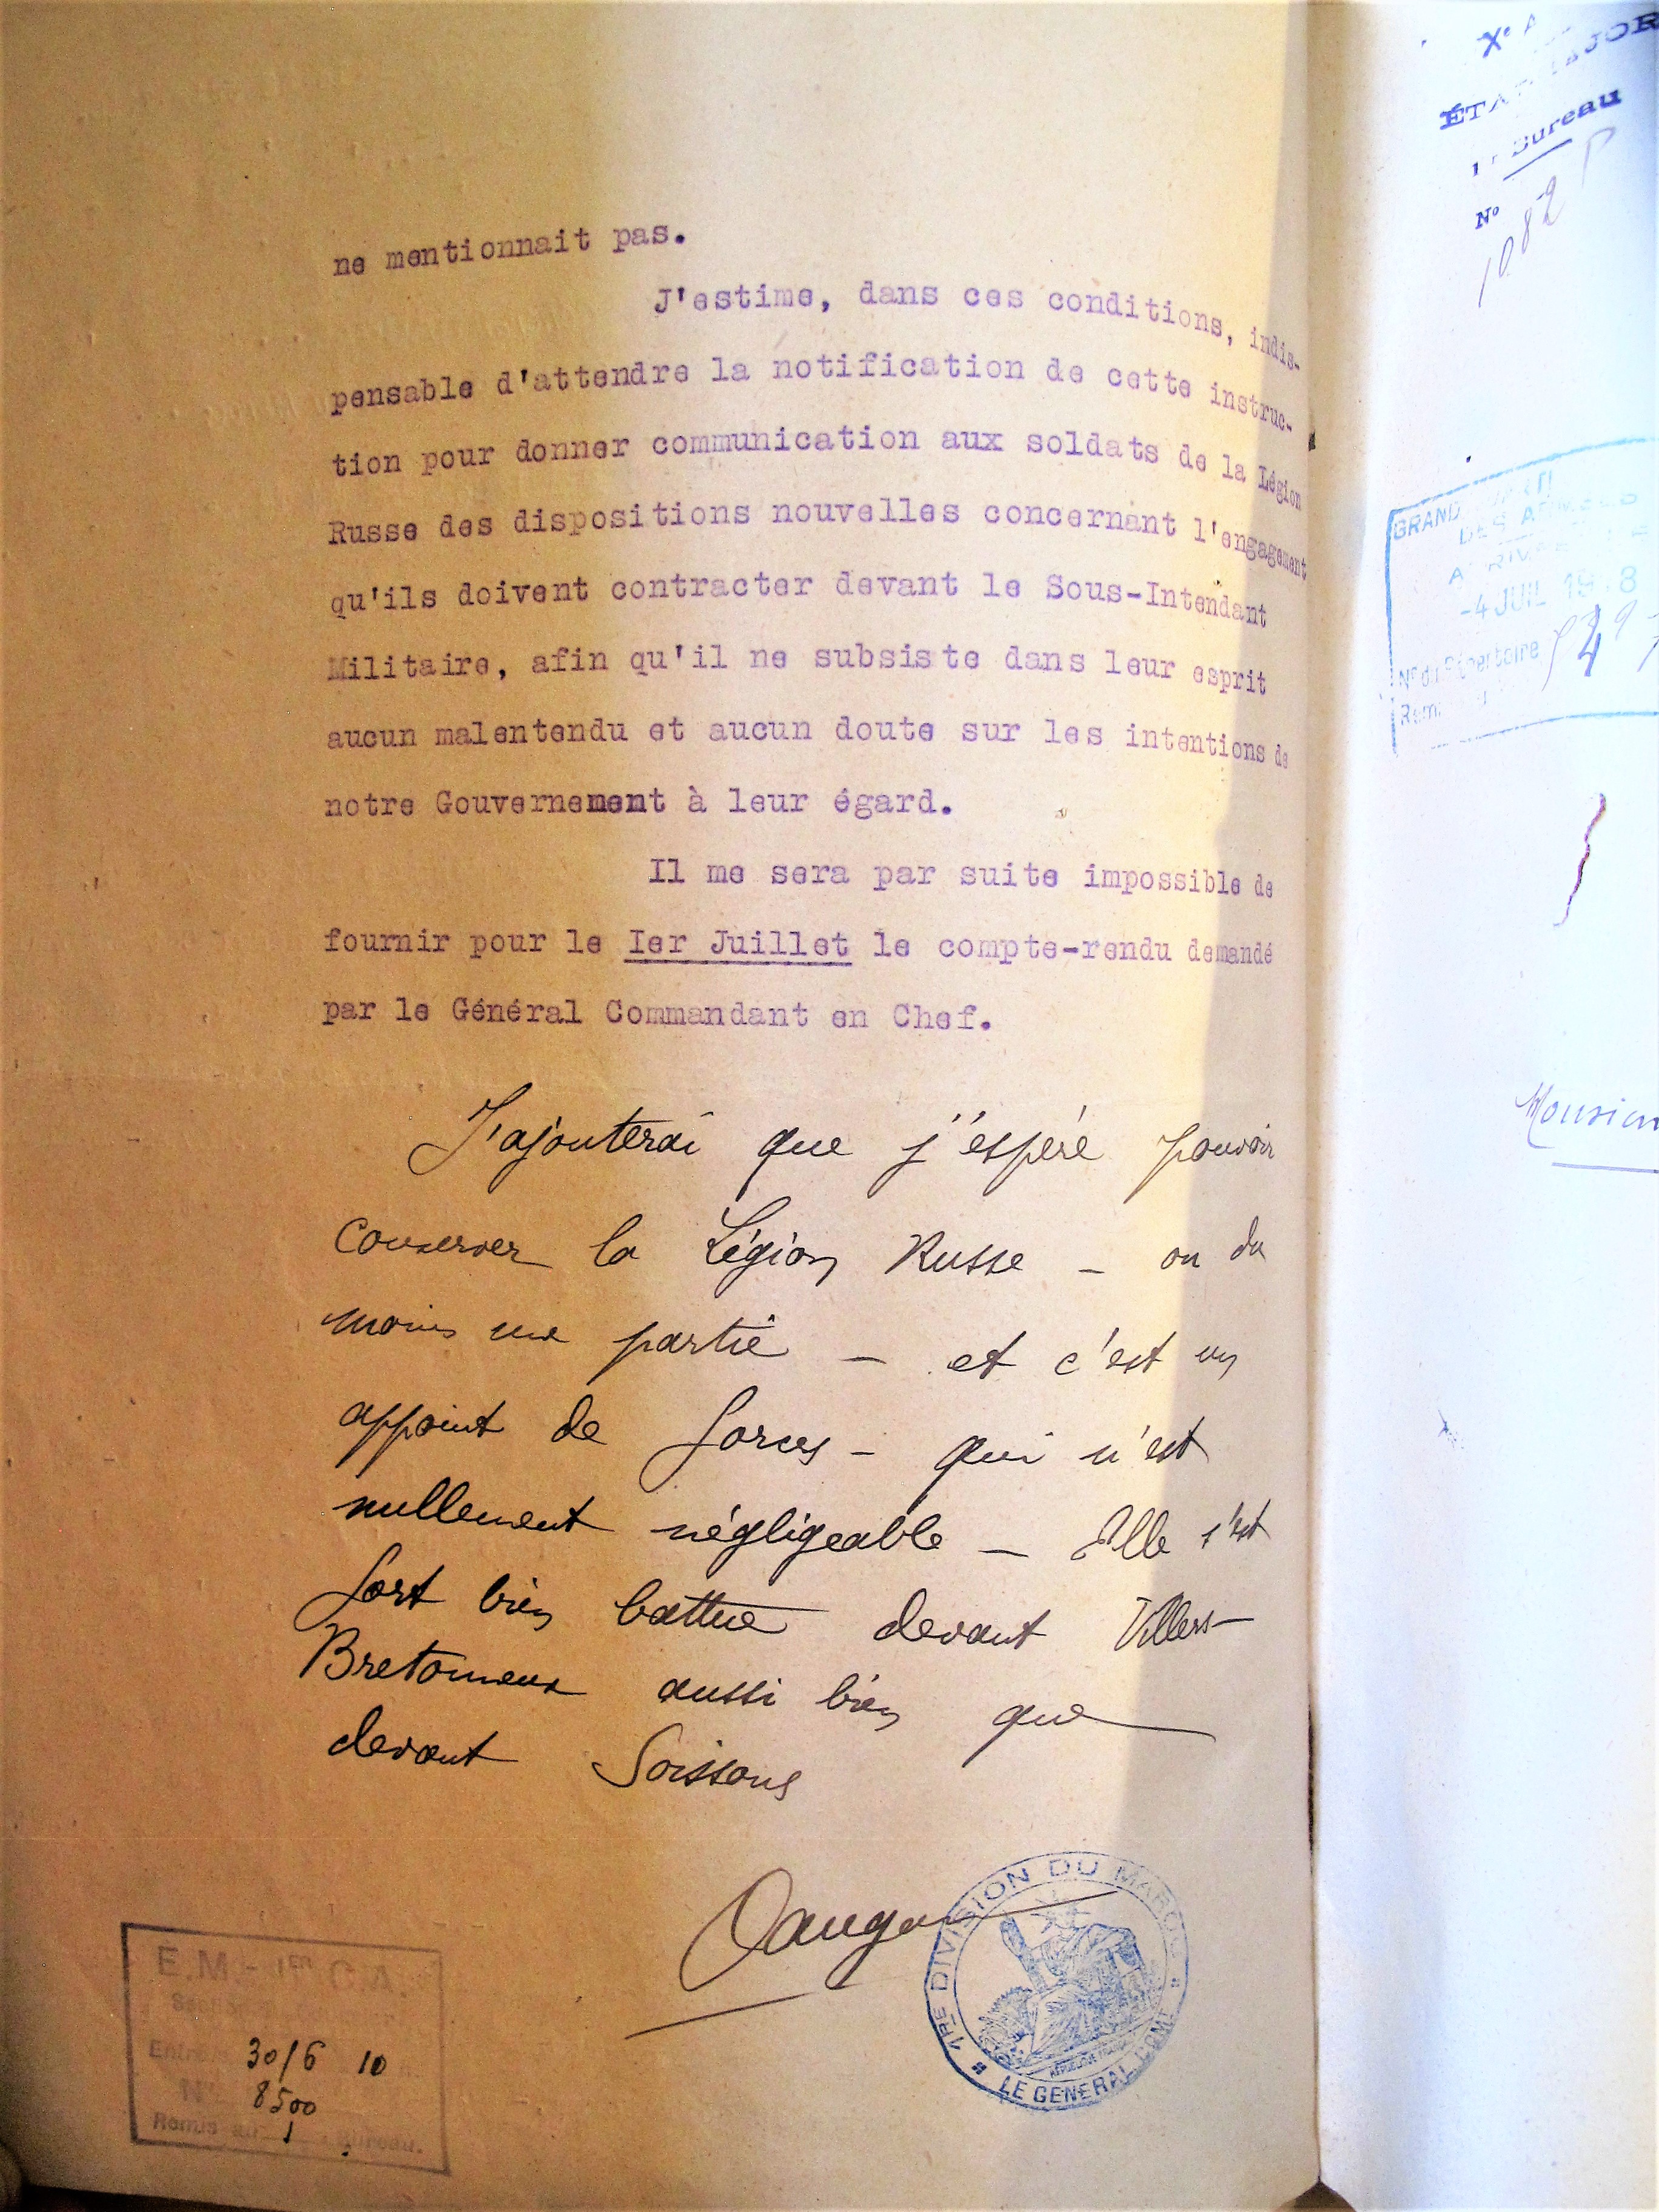 ne mentionnait pas.
J'estime, dans ces conditions, indis-
pensable d'attendre la notification de cette instruc-
tion pour donner communication aux soldats de la Légion
Russe des dispositions nouvelles concernant l'engagement
qu'ils doivent contracter devant le Sous-Intendant
Militaire, afin qu'il ne subsiste dans leur esprit
aucun malentendu et aucun doute sur les intentions de
notre Gouvernement à leur égard.
Il me sera par suite impossible de
fournir pour le Ier Juillet le compte-rendu demandé
par le Général Commandant en Chef.
J'ajouterai que j'espère pouvoir
conserver la Légion Russe — ou du
moins une partie — et c'est un
appoint de forces — qui n'est
nullement négligeable — Elle s'est
fort bien battue devant Villers-
Bretonneux aussi bien que
devant Soissons
Daugan
1RE DIVISION DU MAROC
LE GENERAL COMT
REPUBLIQUE
E.M. - 1ER C.A.
30/6 10
N° 8500
Remis au 1 Bureau.
Xe A
ÉTAT MAJOR
1er Bureau
N° 1082
GRAND
DES ARMEES
-4 JUIL 1918
N° du Répertoire
Monsieur